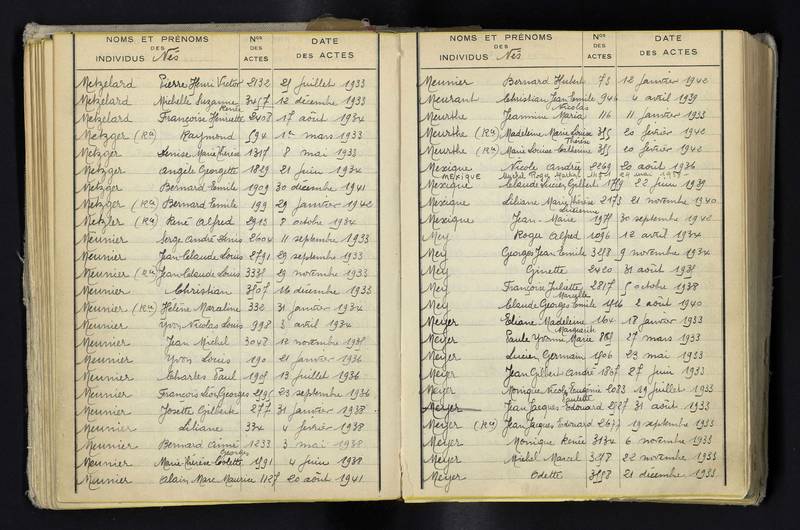 NOMS ET PRÉNOMS
DES
INDIVIDUS Nés
Nos
DES
ACTES
DATE
DES ACTES
Metzelard Pierre Henri Victor 2132 21 juillet 1933
Metzelard Michelle Suzanne Renée 12 décembre 1933
Metzelard Françoise Henriette 2408 17 août 1934
Metzger (Ra) Raymond 594 1er mars 1933
Metzger Denise Marie Thérèse 1317 8 mai 1933
Metzger Angèle Georgette 1829 21 juin 1934
Metzger Bernard Emile 1909 30 décembre 1941
Metzger (Ra) Bernard Emile 199 29 janvier 1942
Metzler (Ra) René Alfred 2913 8 octobre 1934
Meunier Serge André Denis 2604 11 septembre 1933
Meunier Jean Claude Louis 2791 29 septembre 1933
Meunier (Ra) Jean Claude Louis 3331 29 novembre 1933
Meunier Christian 3507 16 décembre 1933
Meunier (Ra) Hélène 332 31 janvier 1934
Meunier Yvon Nicolas Louis 998 3 avril 1934
Meunier Jean Michel 3048 12 novembre
Meunier Yvon Louis 190 21 janvier 1936
Meunier Charles Paul 13 juillet 1936
Meunier François Léon Georges 23 septembre 1936
Meunier Josette Gilberte 277 31 janvier 1938
Meunier Liliane 334 4 février 1938
Meunier Bernard Aimé 1233 3 mai 1938
Meunier Marie Thérèse Colette Georges 4 juin 1938
Meunier Alain Marc Maurice 1127 20 août 1941
NOMS ET PRÉNOMS
DES
INDIVIDUS Nés
Nos
DES
ACTES
DATE
DES ACTES
Meunier Bernard Hubert 73 12 janvier 1942
Meurant Christian Jean Emile Nicolas 946 4 avril 1939
Meurthe Jeannine Maria 116 11 janvier 1933
Meurthe (Ra) Madeleine Marie Louise Thérèse 20 février 1942
Meurthe (Ra) Marie Louise Catherine 20 février 1942
Mexique Nicole Andrée 2269 20 août 1936
MEXIQUE Michel Roger
Mexique Claude Lucien Gilbert 22 juin 1939
Mexique Liliane Marie Thérèse Lucienne 2173 21 novembre 1940
Mexique Jean-Marie 30 septembre 1942
Mey Roger Alfred 1096 12 avril 1934
Mey Georges Jean Emile 3258 9 novembre 1934
Mey Ginette 2420 31 août
Mey Françoise Juliette Marcelle 2817 5 octobre 1938
Mey Claude Georges Emile 2 août 1940
Meyer Eliane Madeleine Marguerite 164 18 janvier 1933
Meyer Paule Yvonne Marie 27 mars 1933
Meyer Lucien Germain 1506 23 mai 1933
Meyer Jean Gilbert André 1867 27 juin 1933
Meyer Monique Nicole Eugénie Paulette 2083 19 juillet 1933
Meyer Jean Jacques Edouard 2527 31 août 1933
Meyer (Ra) Jean Jacques Edouard 2677 19 septembre 1933
Meyer Monique Renée 3134 6 novembre 1933
Meyer Michel Marcel 3258 22 novembre 1933
Meyer Odette 3558 21 décembre 1933